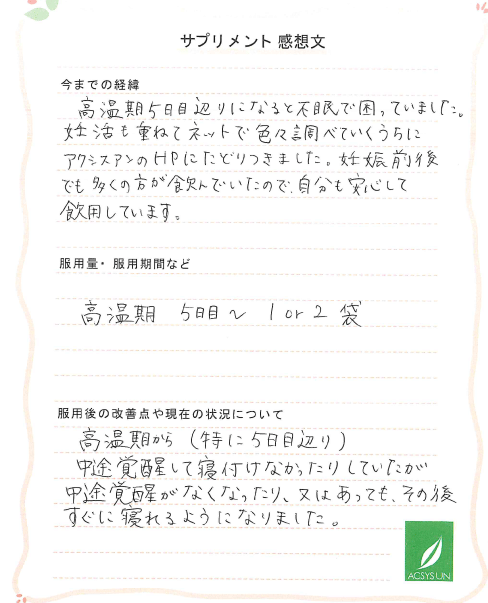 サプリメント 感想文
今までの経緯
高温期5日目辺りになると不眠で困っていました。
妊活も重ねてネットで色々調べていくうちに
アクシスアンのHPにたどりつきました。妊娠前後
でも多くの方が飲んでいたので、自分も安心して
飲用しています。
服用量・服用期間など
高温期 5日目～ 1 or 2 袋
服用後の改善点や現在の状況について
高温期から（特に5日目辺り）
中途覚醒して寝付けなかったりしていたが
中途覚醒がなくなったり、又はあっても、その後
すぐに寝れるようになりました。
ACSYSUN